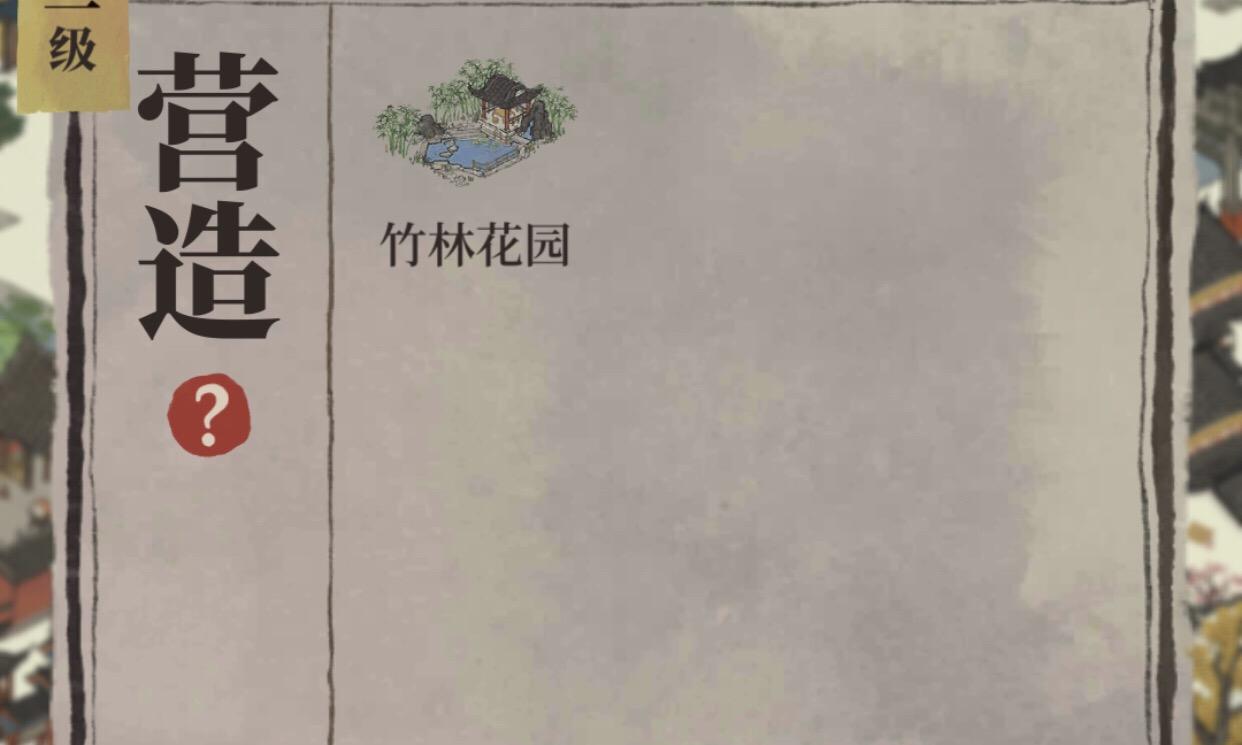 级
营造
?
竹林花园